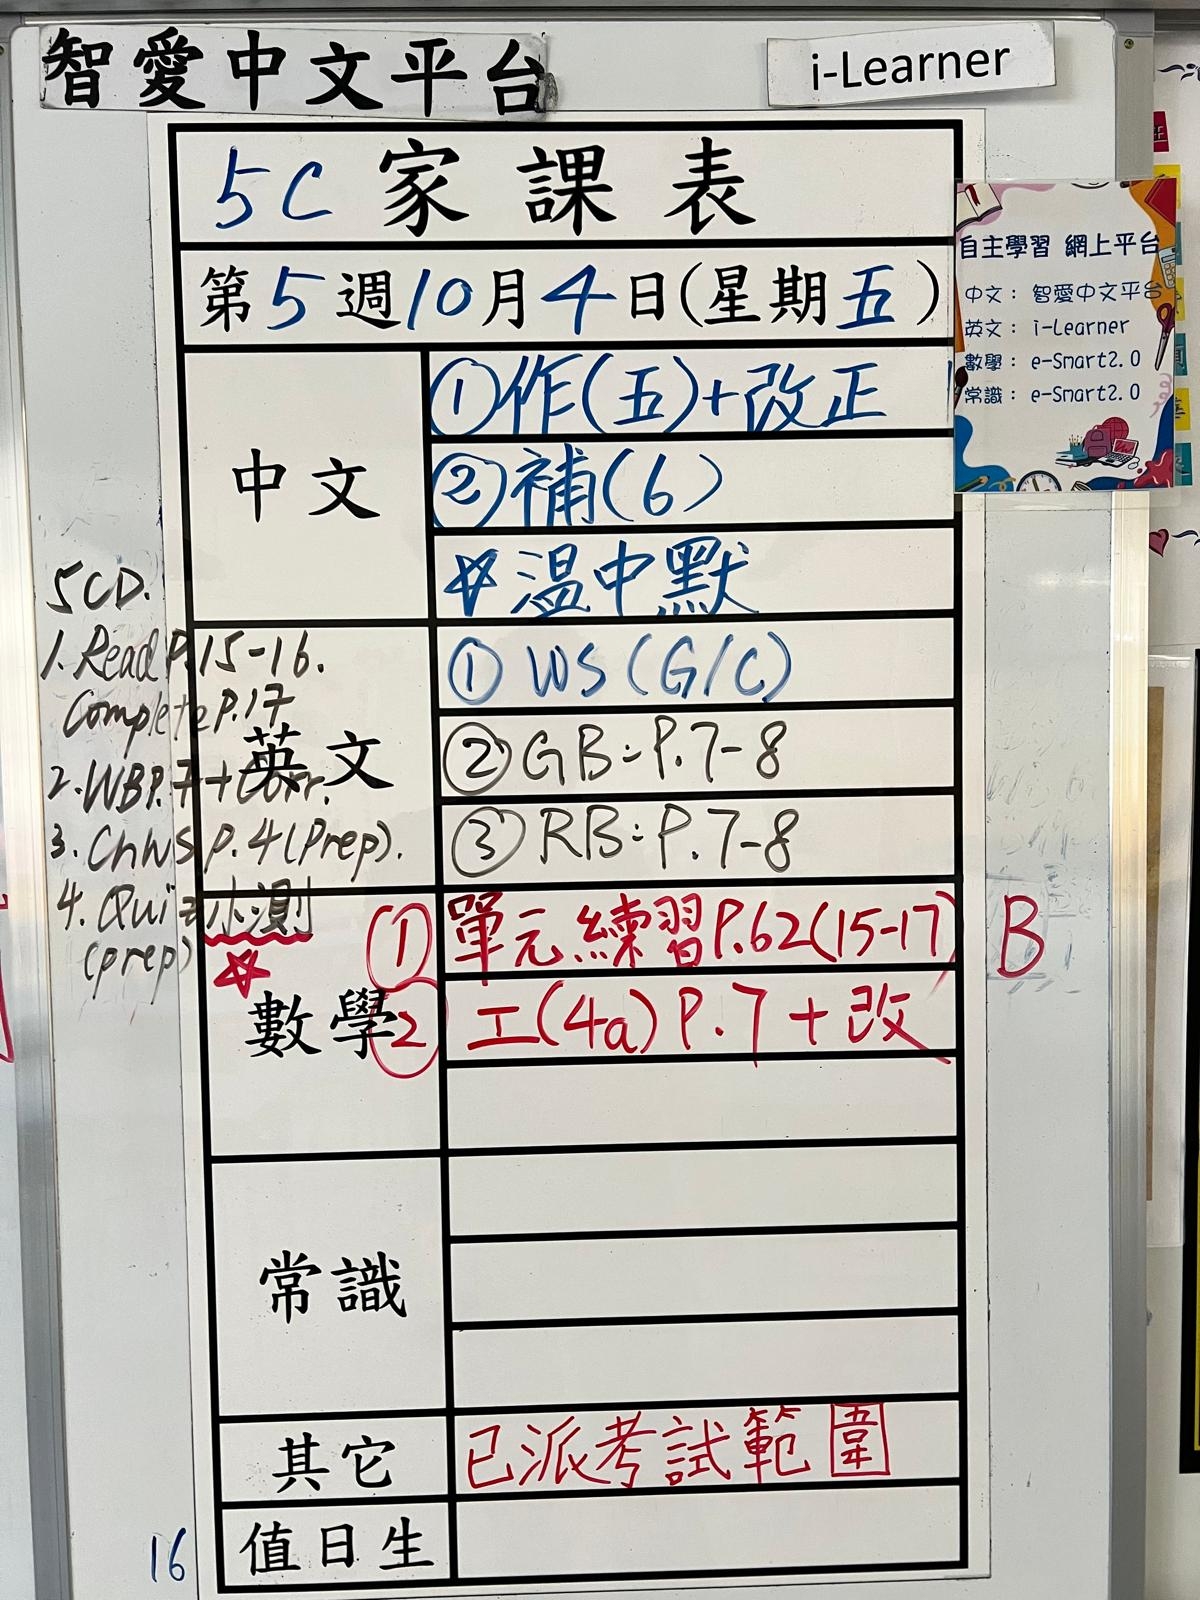 智愛中文平台
i-Learner
5C 家課表
第5週10月4日(星期五)
自主學習 網上平台
中文：智愛中文平台
英文：i-Learner
數學：e-Smart2.0
常識：e-Smart2.0
中文
①作(五)+改正
②補(6)
☆溫中默
5CD.
1. Read P.15-16.
Complete P.17
2. WB P.7+Corr.
3. ChWS P.4(Prep).
4. Quiz小測
(prep)
☆
英文
① WS(G/C)
② GB:P.7-8
③ RB:P.7-8
數學
① 單元練習P.62(15-17) B
② 工(4a) P.7+改
常識
其它
已派考試範圍
值日生
16